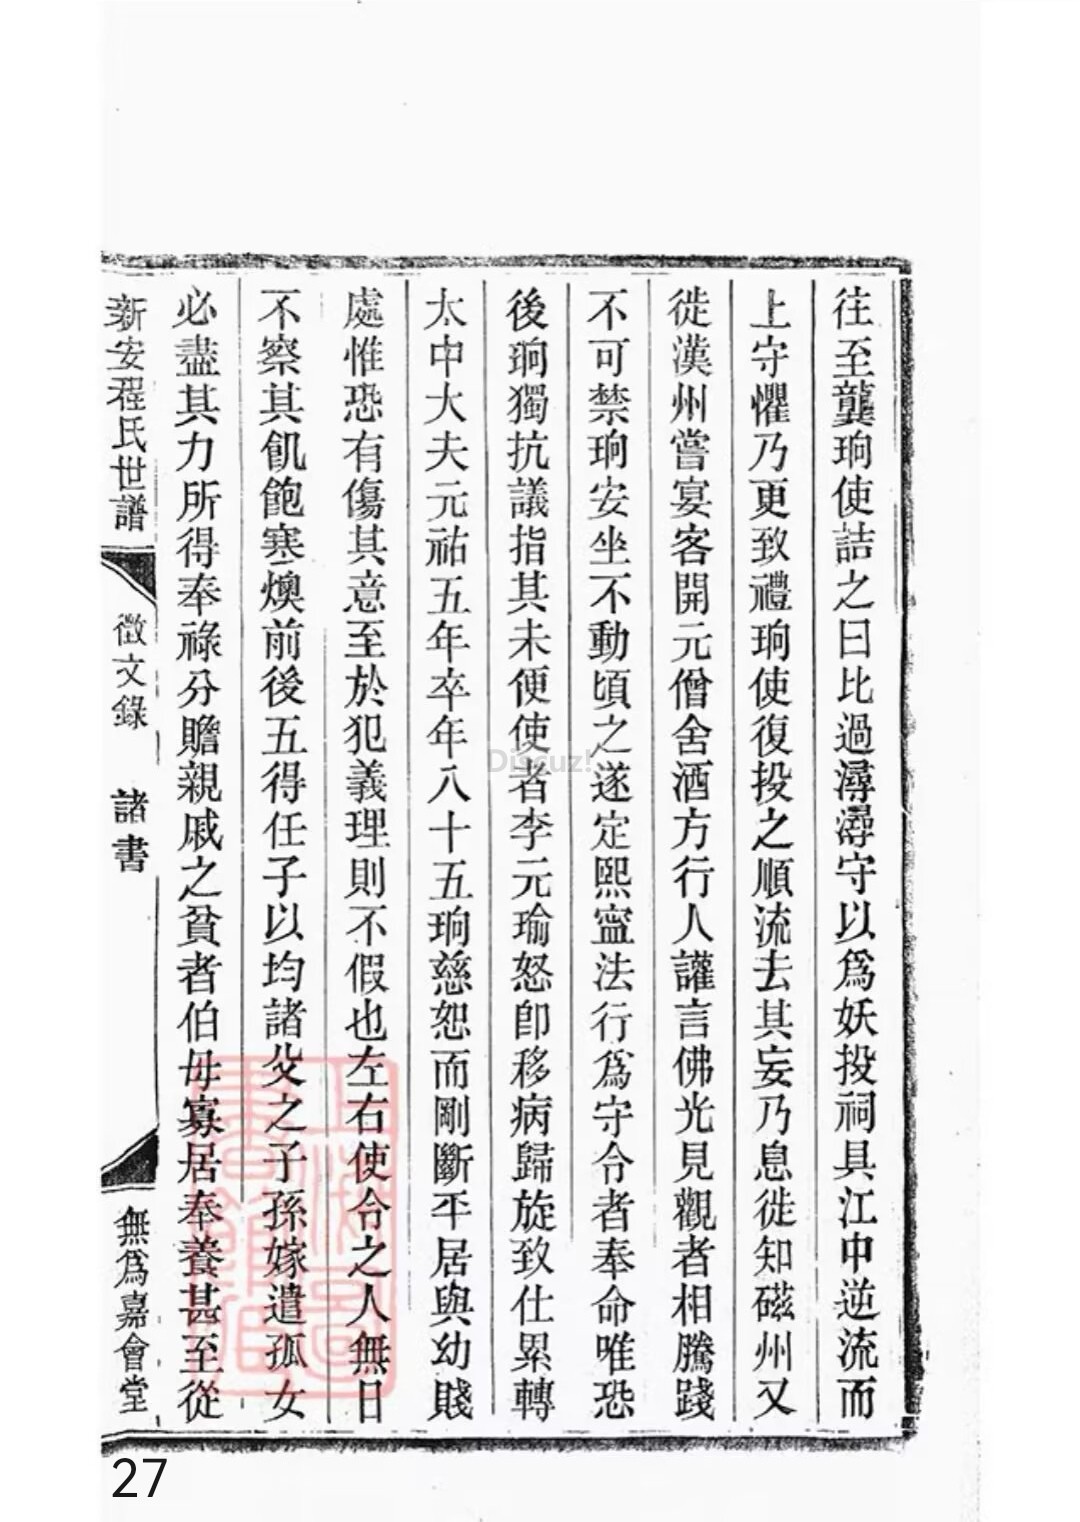 往至龔珦使詰之曰比過潯潯守以爲妖投祠具江中逆流而
上守懼乃更致禮珦使復投之順流去其妄乃息徙知磁州又
徙漢州嘗宴客開元僧舍酒方行人讙言佛光見觀者相騰踐
不可禁珦安坐不動頃之遂定熙寍法行爲守令者奉命唯恐
後珦獨抗議指其未便使者李元瑜怒卽移病歸旋致仕累轉
太中大夫元祐五年卒年八十五珦慈恕而剛斷平居與幼賤
處惟恐有傷其意至於犯義理則不假也左右使令之人無日
不察其飢飽寒燠前後五得任子以均諸父之子孫嫁遣孤女
必盡其力所得奉祿分贍親戚之貧者伯母寡居奉養甚至從
新安程氏世譜 徵文錄 諸書 無爲嘉會堂
上海圖書館藏
Discuz!
27